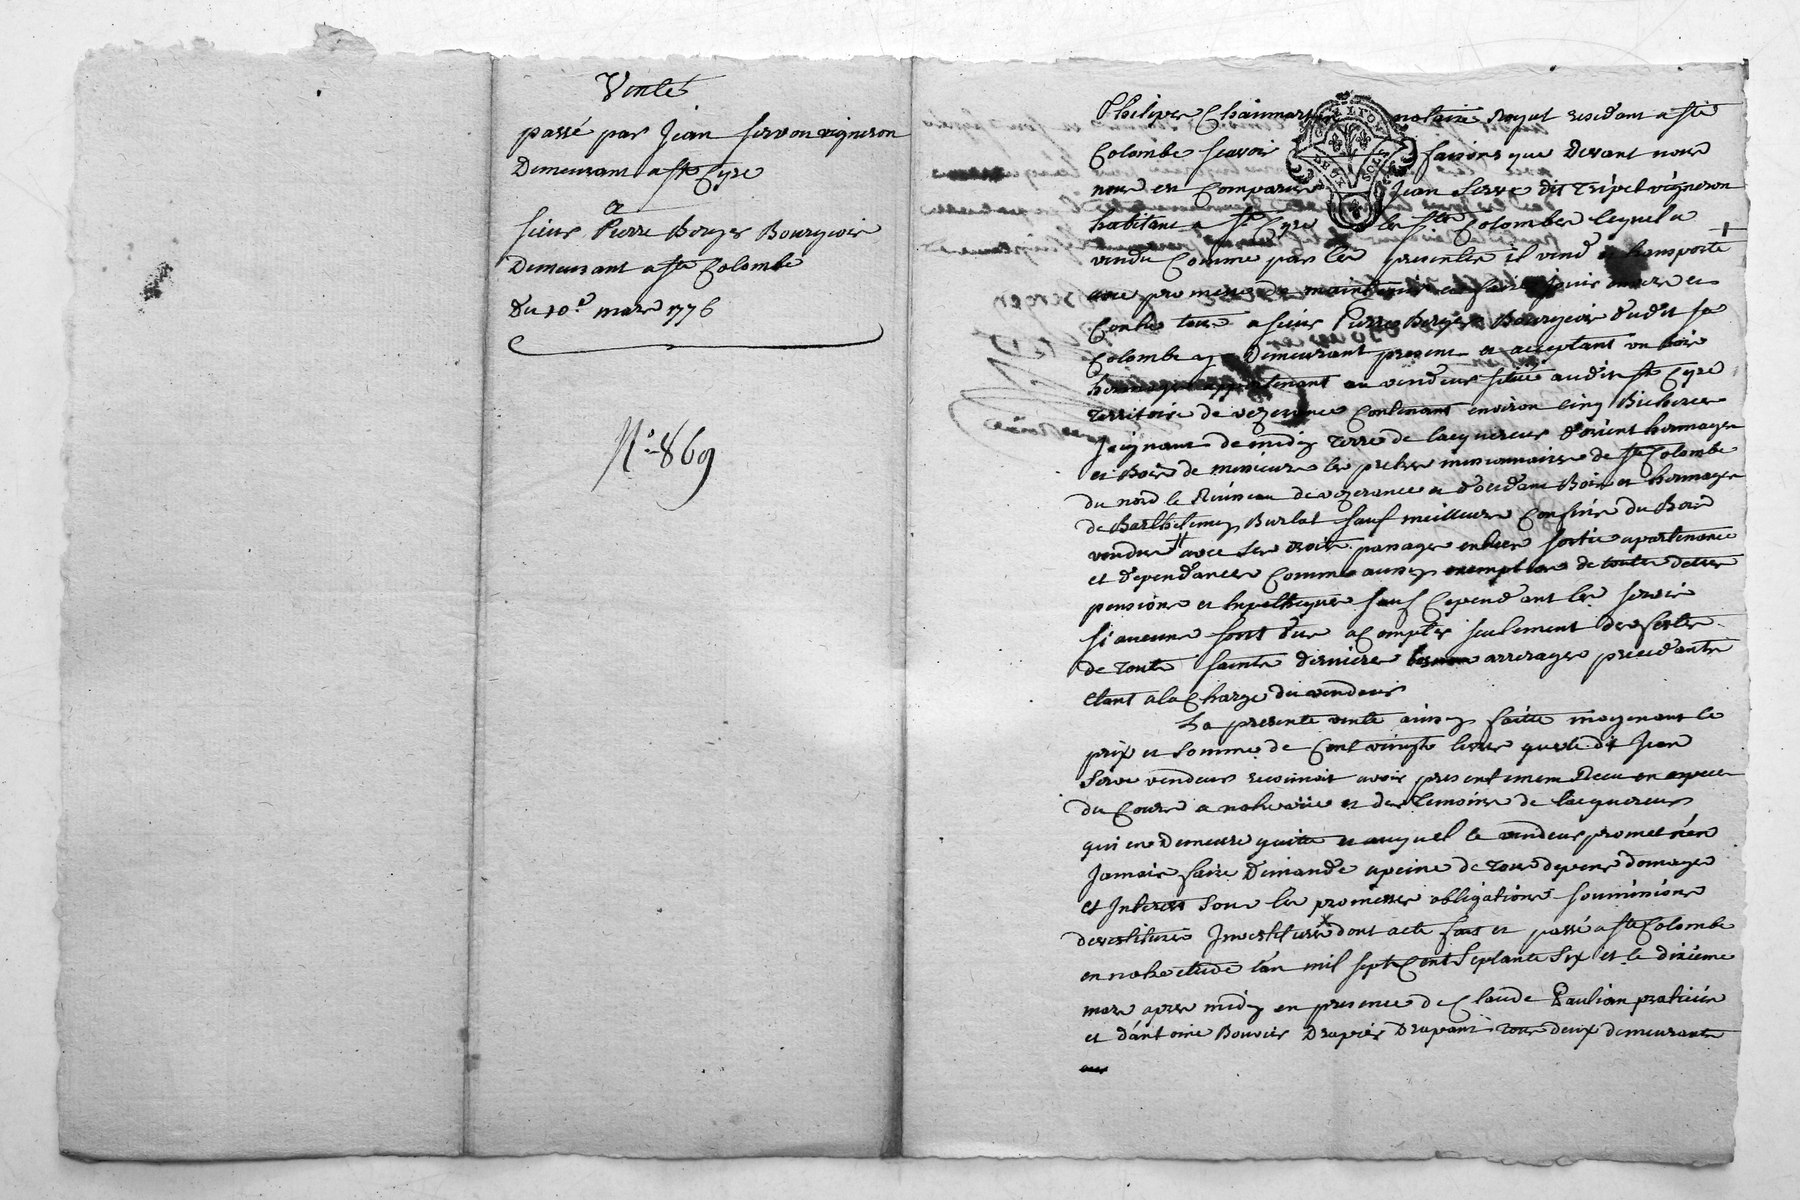 Vente
passé par Jean Serve vigneron
Demeurant a Ste Cyre
a
sieur Pierre Berger Bourgeois
Demeurant a Ste Colombe
du 10e mars 1776
N° 869
Philipes Chaumartin notaire Royal residant a Ste
Colombe scavoir faisons que Devant nous
nous est Comparu Jean Serve dit Tripet vigneron
habitant a St Cyre les Ste Colombe lequel a
vendu Comme par les presentes il vend et transporte
avec promesse de maintenir et faire jouir envers et
Contre tous a sieur Pierre Berger Bourgeois dudit Ste
Colombe y Demeurant present et acceptant un bois
hermage appartenant au vendeur situé audit St Cyre
Territoire de vezerance Contenant environ Cinq Bicherées
Joignant de midy Terre de lacquereur d'orient hermage
et Bois de messieurs les pretres missionnaires de Ste Colombe
du nord le Ruisseau de vezerance et d'occidant Bois et hermage
de Barthelemy Burlat sauf meilleurs Confins du Bois
vendu avec ses droits passages entrées sortie apartenance
et dependances Comme aussy exemption de toutes dettes
pensions et hypotheques sauf Cependant les servis
si aucuns sont dus a Compter seulement des festes
de Toute Sainte derniere arrerages precedants
etant a la Charge du vendeur
La presente vente ainsy faitte moyenant le
prix et somme de Cent vingts livres que le dit Jean
Serve vendeur reconnoit avoir presentement Reçu en especes
du Cours a notre vüe et des Temoins de lacquereur
qui en Demeure quitte et auquel le vendeur promet n'en
Jamais faire Demande a peine de tous depens domages
et Interets sous les promesses obligations soumissions
devestiture Investiture dont acte fait et passé a Ste Colombe
en notre etude l'an mil sept Cent Septante Six et le dixieme
mars apres midy en presence de Claude Paulian praticien
et d'antoine Bouvier Drapier Drapant tous deux demeurants